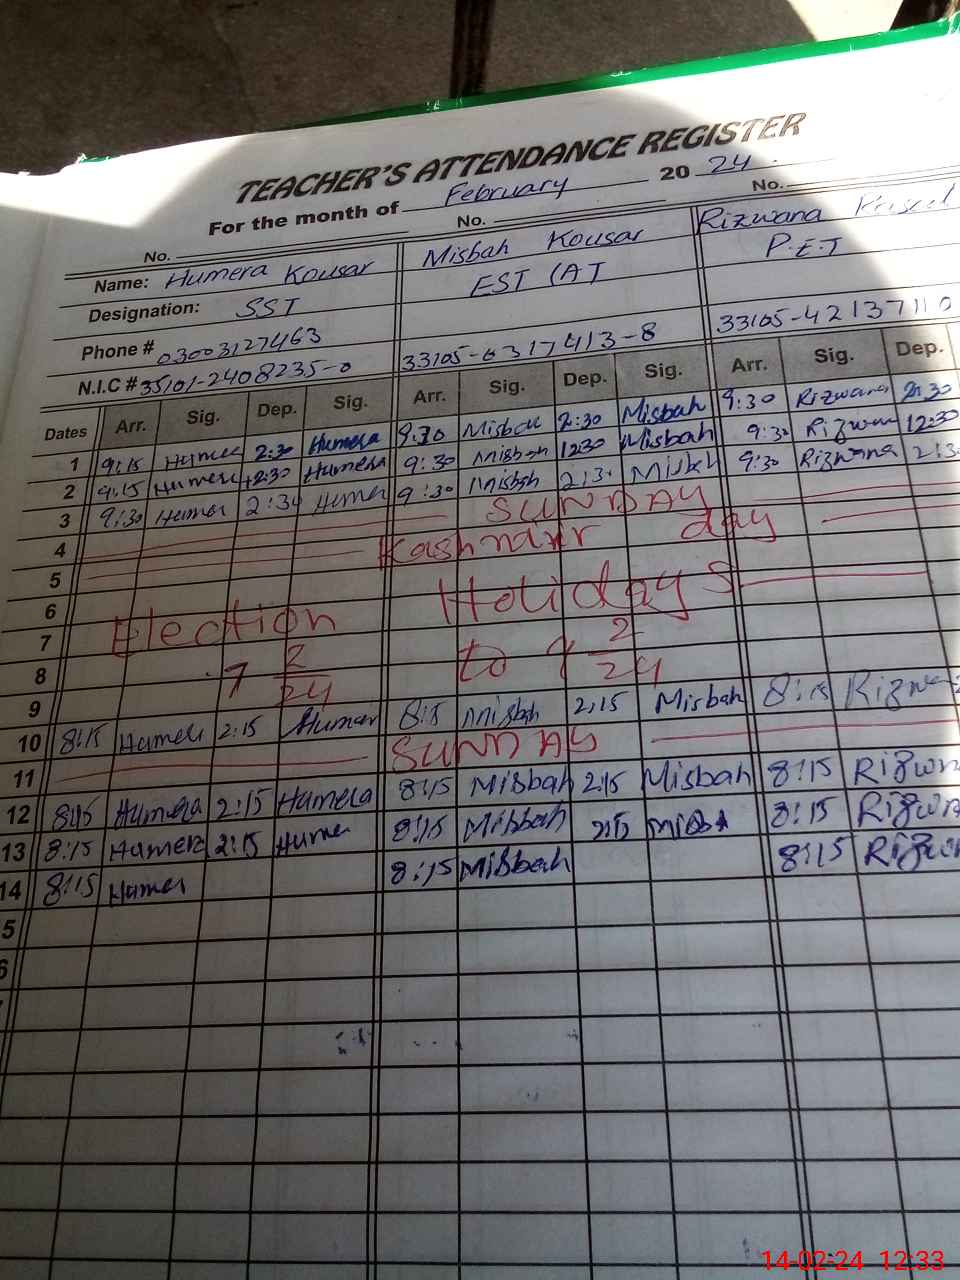 TEACHER'S ATTENDANCE REGISTER
For the month of February 20 24
No. No. No.
Name: Humera Kousar Misbah Kousar Rizwana
Designation: SST EST (AT P.E.T
Phone # 03003127463
N.I.C # 35101-2408235-0 33105-0317413-8 33105-4213711 0
Dates Arr. Sig. Dep. Sig. Arr. Sig. Dep. Sig. Arr. Sig. Dep.
1 9:15 Humera 2:30 Humera 9:30 Misbah 2:30 Misbah 9:30 Rizwana 2:30
2 9:15 Humera 12:30 Humera 9:30 Misbah 12:30 Misbah 9:30 Rizwan 12:30
3 9:30 Humer 2:30 Humer 9:30 Misbah 2:30 Misbah 9:30 Rizwana 2:30
4 SUNDAY
5 Kashmir day
6 Holidays
7 Election
8 7 2/24 to 9 2/24
9
10 8:15 Humera 2:15 Humera 8:15 Misbah 2:15 Misbah 8:15 Rizwa
11 SUNDAY
12 8:15 Humera 2:15 Humera 8:15 Misbah 2:15 Misbah 8:15 Rizwan
13 8:15 Humera 2:15 Hume 8:15 Misbah 2:15 Misba 8:15 Rizwan
14 8:15 Humer 8:15 Misbah 8:15 Rizwan
5
6
14-02-24 12:33